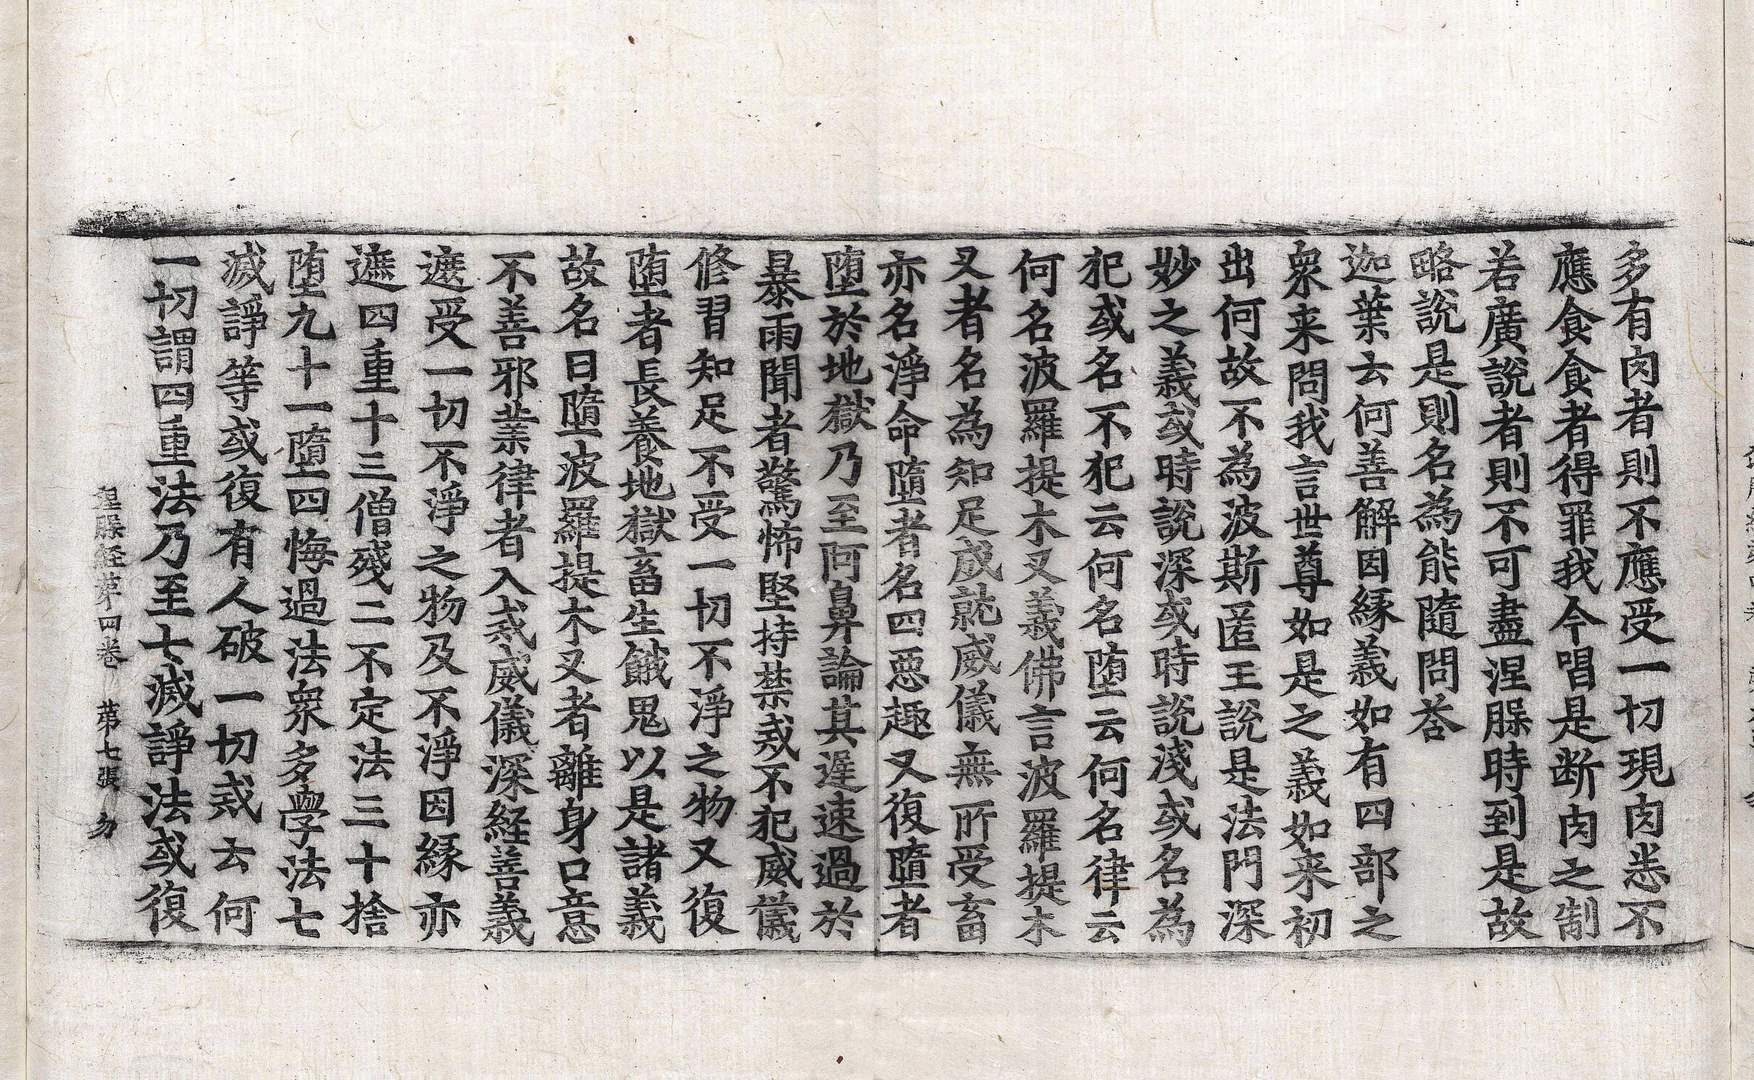 多有肉者則不應受一切現肉悉不
應食食者得罪我今唱是断肉之制
若廣說者則不可盡涅縣時到是故
略說是則名為能隨問荅
迦葉云何善解因縁義如有四部之
衆来問我言世尊如是之義如来初
出何故不為波斯匿王說是法門深
妙之義或時說深或時說淺或名為
犯或名不犯云何名堕云何名律云
何名波羅提木叉義佛言波羅提木
叉者名為知足成就威儀無所受畜
亦名淨命墮者名四惡趣又復墮者
堕於地獄乃至阿鼻論其遲速過於
暴雨聞者驚怖堅持禁戒不犯威儀
修習知足不受一切不淨之物又復
堕者長養地獄畜生餓鬼以是諸義
故名曰墮波羅提木叉者離身口意
不善邪業律者入戒威儀深経善義
遮受一切不淨之物及不淨因縁亦
遮四重十三僧殘二不定法三十捨
堕九十一墮四悔過法衆多學法七
滅諍等或復有人破一切戒云何
一切謂四重法乃至七滅諍法或復
経苐四卷 第七張